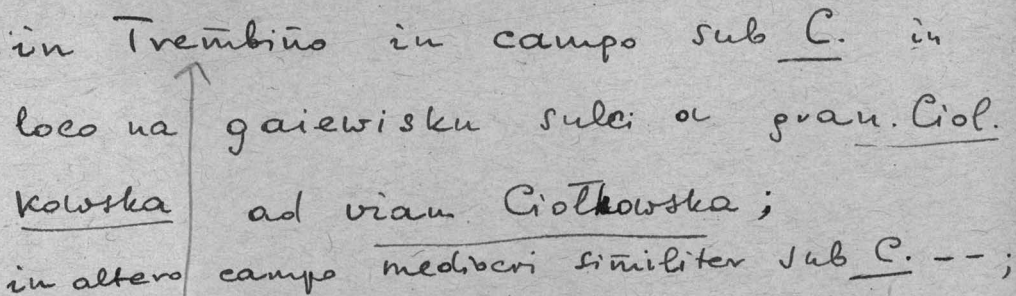 in Trembino in campo sub C. in
loco na gaiewisku sulci a gran. Ciol.
kowska ad viam Ciołkowska;
in altero campo mediocri similiter sub C. --;